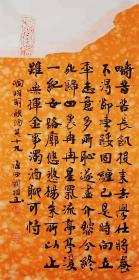 疇昔苦長飢投耒去學仕將養
不得節凍餒固纏己是時向立
年志意多所恥遂盡介然分終
死歸田里冉冉星氣流亭亭復
一紀世路廓悠悠楊朱所以止
雖無揮金事濁酒聊可恃
陶淵明飲酒其十九